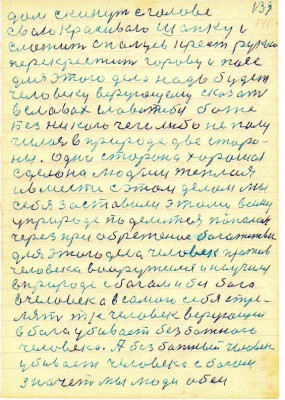 139
дом скинут с голове
свою красивою шапку и
сложит с пальцев крест рукою
перекрестит голову и пояс
для этого дела надо будет
человику верующему сказать
в словах слава тиби боже
Без никого чего либо не полу
чилося в природе две сторо-
ны. Одна сторона хорошая
сделона людми теплая
и вмести с этим делом мы
себя заставили этому всему
у природе поделится пополам
через приобретение богатства
для этого дела человек против
человека вооружился и научился
в природе с богами и без бога
в человека в самой себя стре-
лять т е человек верующий
в бога убивает без божного
человека. А без божный человек
убивает человека с богом
значет мы люди обеи